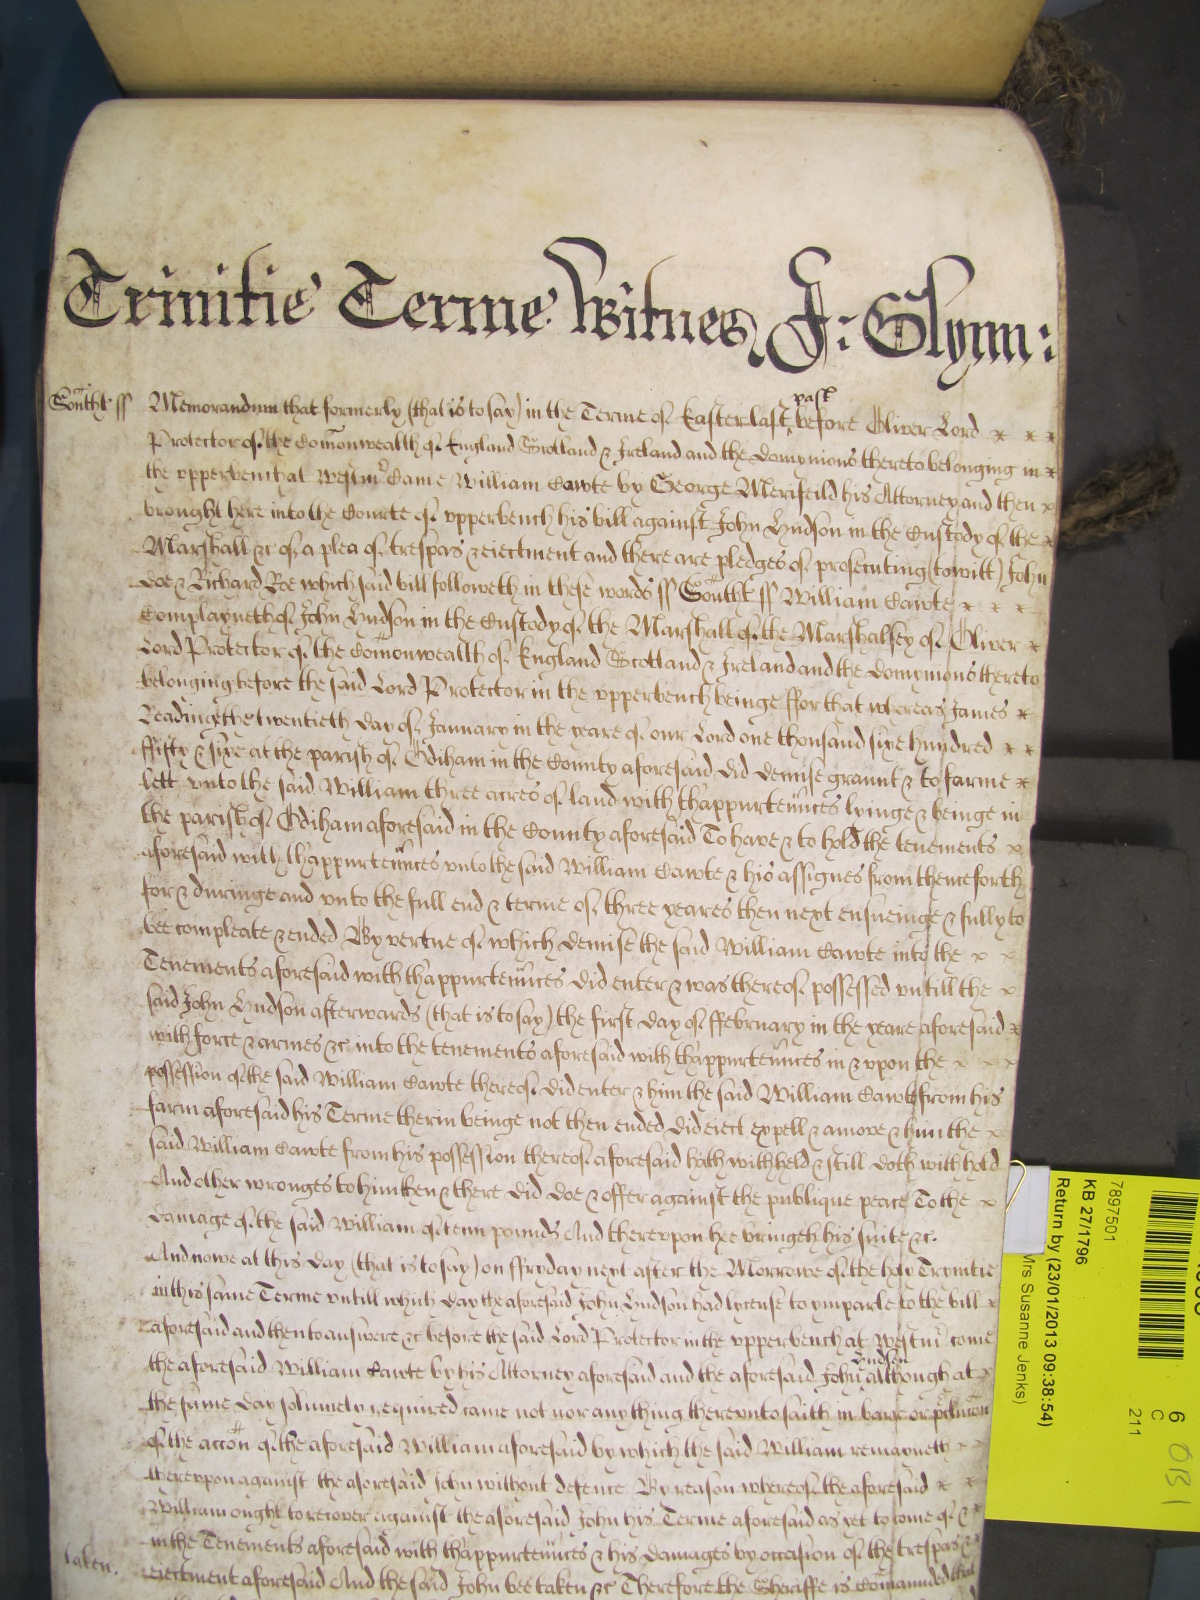 Trinitie Terme Witnes J: Glynn:
South't ss Memorandum that formerly (that is to say) in the Terme of Easter last past before Oliver Lord
Protector of the Com̄onwealth of England Scotland & Ireland and the Domynions thereto belonging in
the vpperbench at Westm̄ Came William Cawte by George Merifeild his Attorney and then
brought here into the Courte of vpperbench his bill against John Hudson in the Custody of the
Marshall &c of a plea of trespas & eiectment and there are pledges of prosecuting (to witt) John
Doe & Richard Roe which said bill followeth in these words ss South't ss William Cawte
Complayneth of John Hudson in the Custody of the Marshall of the Marshalsey of Oliver
Lord Protector of the Com̄onwealth of England Scotland & Ireland and the Domynions thereto
belonging before the said Lord Protector in the vpperbench beinge ffor that whereas James
Reading the twentieth day of January in the yeare of our Lord one thousand sixe hundred
ffifty & sixe at the parish of Odiham in the County aforesaid did demise graunt & to farme
lett vnto the said William three acres of land with th'appurten̄nces lyinge & beinge in
the parish of Odiham aforesaid in the County aforesaid To have & to hold the tenements
aforesaid with th'appurten̄nces vnto the said William Cawte & his assignes from thenceforth
for & duringe and vnto the full end & terme of three yeares then next ensueinge & fully to
bee compleate & ended By vertue of which demise the said William Cawte into the
Tenements aforesaid with th'appurten̄nces did enter & was thereof possessed vntill the
said John Hudson afterwards (that is to say) the first day of ffebruary in the yeare aforesaid
with force & armes &c into the tenements aforesaid with th'appurten̄nces in & vpon the
possession of the said William Cawte thereof did enter & him the said William Cawte from his
farm aforesaid his Terme therin beinge not then ended did eiect expell & amove & him the
said William Cawte from his possession thereof aforesaid hath withheld & still doth withhold
And other wronges to him then & there did doe & offer against the publique peace To the
damage of the said William of tenn pounds And therevpon hee bringeth his suite &c.
And nowe at this day (that is to say) on ffryday next after the Morrowe of the holy Trynitie
in this same Terme vntill which day the aforesaid John Hudson had lycense to ymparle to the bill
aforesaid and then to answere &c before the said Lord Protector in the vpper bench at Westm̄ come
the aforesaid William Cawte by his Attorney aforesaid and the aforesaid John Hudson although at
the same day solemnely required came not nor any thing therevnto saith in barre or
of the acc̄on of the aforesaid William aforesaid by which the said William remayneth
therevpon against the aforesaid John without defence By reason whereof the aforesaid
William ought to recover against the aforesaid John his Terme aforesaid as yet to come of &
in the Tenements aforesaid with th'appurten̄nces & his damages by occasion of the trespas &
taken. eiectment aforesaid And the said John bee taken &c Therefore the Sheriffe is Com̄aunded that
7897501
KB 27/1796
Return by (23/01/2013 09:38:54)
Mrs Susanne Jenks)
6
C
211